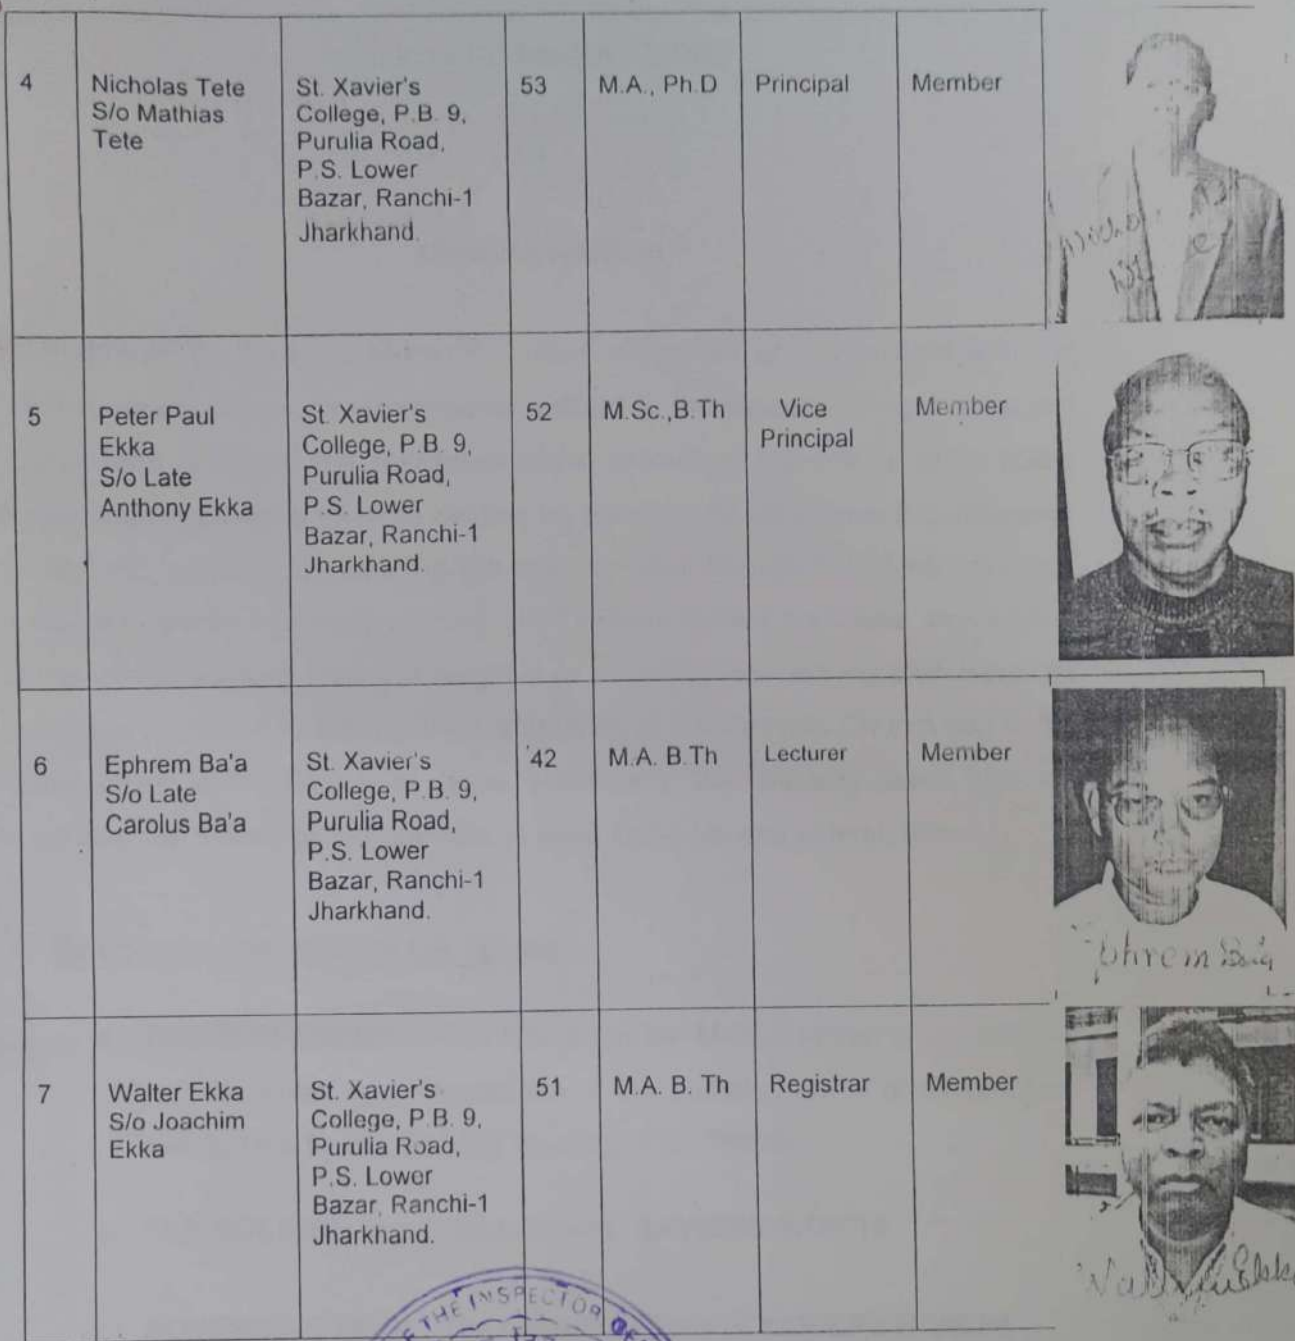 4
Nicholas Tete
S/o Mathias
Tete
St. Xavier's
College, P.B. 9,
Purulia Road,
P.S. Lower
Bazar, Ranchi-1
Jharkhand.
53
M.A., Ph.D
Principal
Member
5
Peter Paul
Ekka
S/o Late
Anthony Ekka
St. Xavier's
College, P.B. 9,
Purulia Road,
P.S. Lower
Bazar, Ranchi-1
Jharkhand.
52
M.Sc.,B.Th
Vice
Principal
Member
6
Ephrem Ba'a
S/o Late
Carolus Ba'a
St. Xavier's
College, P.B. 9,
Purulia Road,
P.S. Lower
Bazar, Ranchi-1
Jharkhand.
42
M.A. B.Th
Lecturer
Member
Ephrem Ba'a
7
Walter Ekka
S/o Joachim
Ekka
St. Xavier's
College, P.B. 9,
Purulia Road,
P.S. Lower
Bazar, Ranchi-1
Jharkhand.
51
M.A. B. Th
Registrar
Member
Walter Ekka
THE INSPECTOR